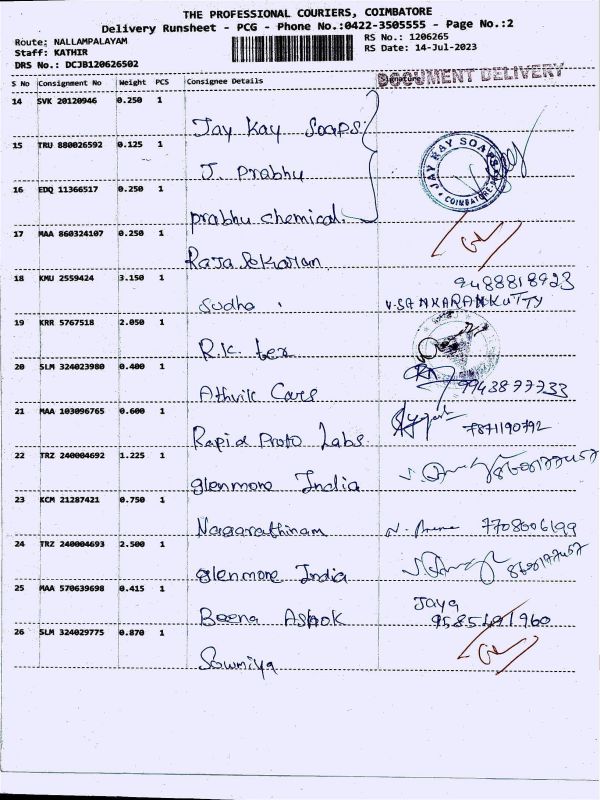 THE PROFESSIONAL COURIERS, COIMBATORE
Delivery Runsheet - PCG - Phone No.:0422-3505555 - Page No.:2
Route: NALLAMPALAYAM
Staff: KATHIR
DRS No.: DCJB120626502
RS No.: 1206265
RS Date: 14-Jul-2023
S No Consignment No Weight PCS Consignee Details Signature
DOCUMENT DELIVERY
14 SVK 20120946 0.250 1 Jay Kay Soaps
15 TRU 880026592 0.125 1 J. Prabhu
JAY KAY SOAPS
COIMBATORE
16 EDQ 11366517 0.250 1 prabhu chemical.
17 MAA 860324107 0.250 1 Raja Sekaram
18 KMU 2559424 3.150 1 Sudha
9488818923
V.SANKARANKUTTY
19 KRR 5767518 2.050 1 R.K. tex
20 SLM 324023980 0.400 1 Athvik Cares 9943877733
21 MAA 103096765 0.600 1 Rapid Proto Labs. 7871190792
22 TRZ 240004692 1.225 1 glenmore India
23 KCM 21287421 0.750 1 Nagarathinam 7708606199
24 TRZ 240004693 2.500 1 glenmore India
25 MAA 570639698 0.415 1 Beena Ashok Jaya
26 SLM 324029775 0.870 1 Sowmiya